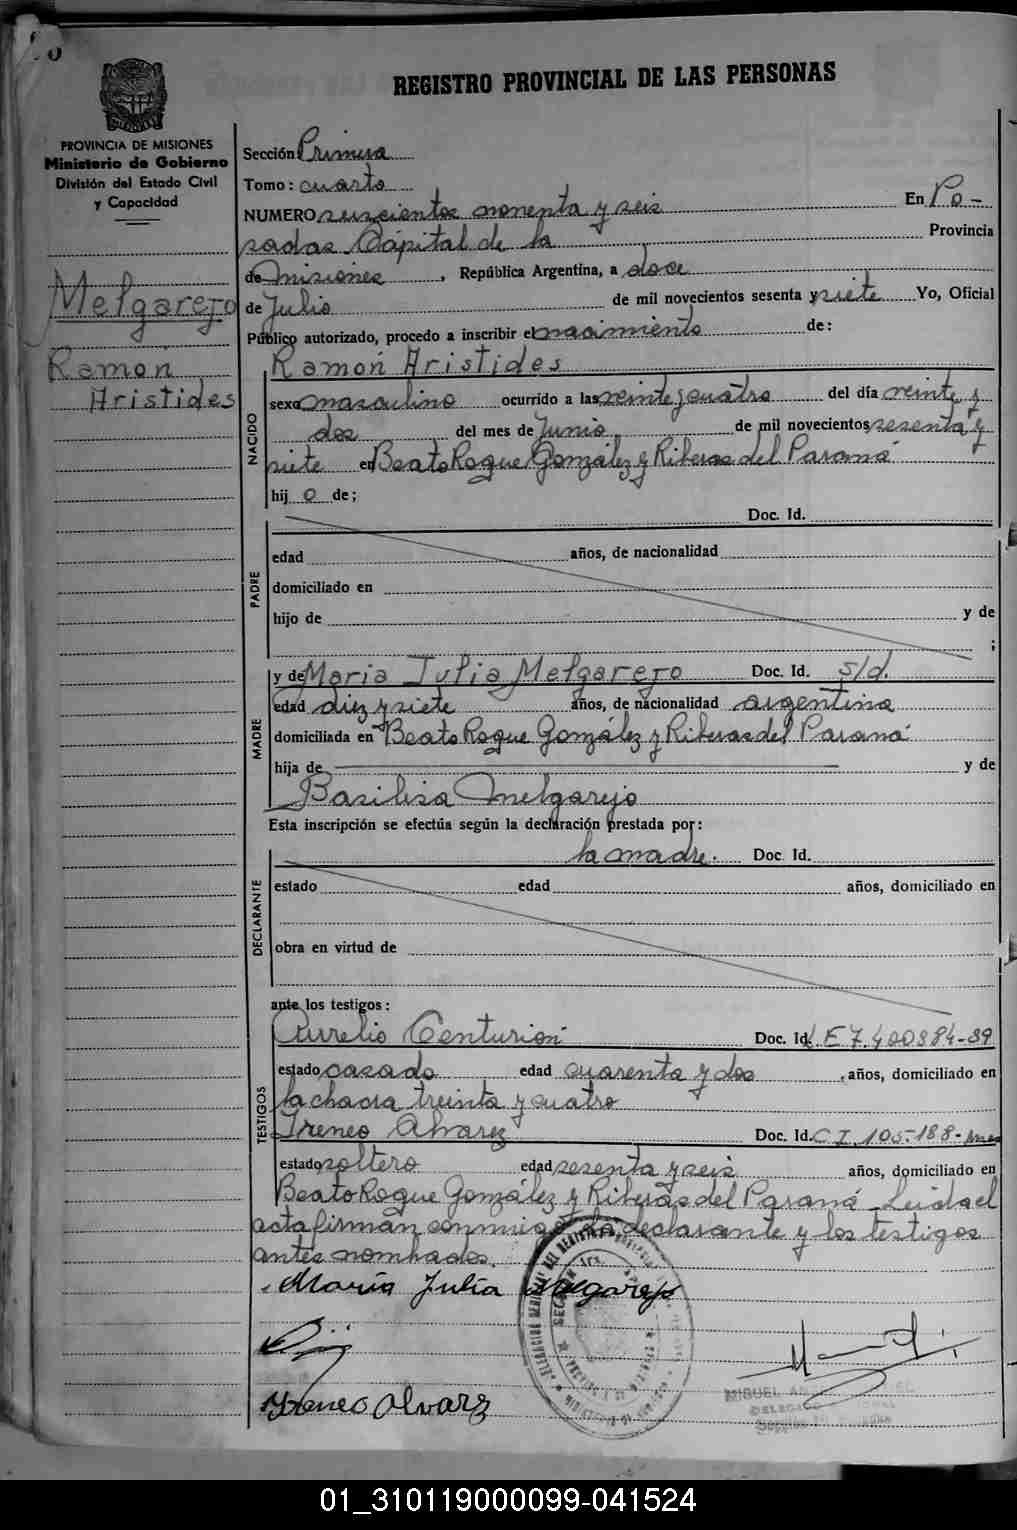 REGISTRO PROVINCIAL DE LAS PERSONAS
PROVINCIA DE MISIONES
Ministerio de Gobierno
División del Estado Civil
y Capacidad
Melgarejo
Ramón
Aristides
Sección Primera
Tomo: cuarto
NUMERO seiscientos noventa y seis En Po-
sadas Capital de la Provincia
de Misiones, República Argentina, a doce
de Julio de mil novecientos sesenta y siete Yo, Oficial
Público autorizado, procedo a inscribir el nacimiento de:
NACIDO
Ramón Aristides
sexo masculino ocurrido a las veinte y cuatro del día veinte y
dos del mes de Junio de mil novecientos sesenta y
siete en Beato Roque González y Riberas del Paraná
hij o de;
PADRE
Doc. Id.
edad años, de nacionalidad
domiciliado en
hijo de y de
;
MADRE
y de Maria Julia Melgarejo Doc. Id. s/d.
edad diez y siete años, de nacionalidad argentina
domiciliada en Beato Roque González y Riberas del Paraná
hija de y de
Basilisa Melgarejo
Esta inscripción se efectúa según la declaración prestada por:
la madre. Doc. Id.
DECLARANTE
estado edad años, domiciliado en
obra en virtud de
ante los testigos:
TESTIGOS
Aurelio Centurión Doc. Id. L.E 7.400984-39
estado casado edad cuarenta y dos, años, domiciliado en
la chacra treinta y cuatro
Ireneo Alvarez Doc. Id. C I. 105.188-
estado soltero edad sesenta y seis años, domiciliado en
Beato Roque González y Riberas del Paraná. Leida el
acta firman conmigo la declarante y los testigos
antes nombrados.
María Julia Melgarejo
Yreneo Alvarz
MIGUEL
01_310119000099-041524